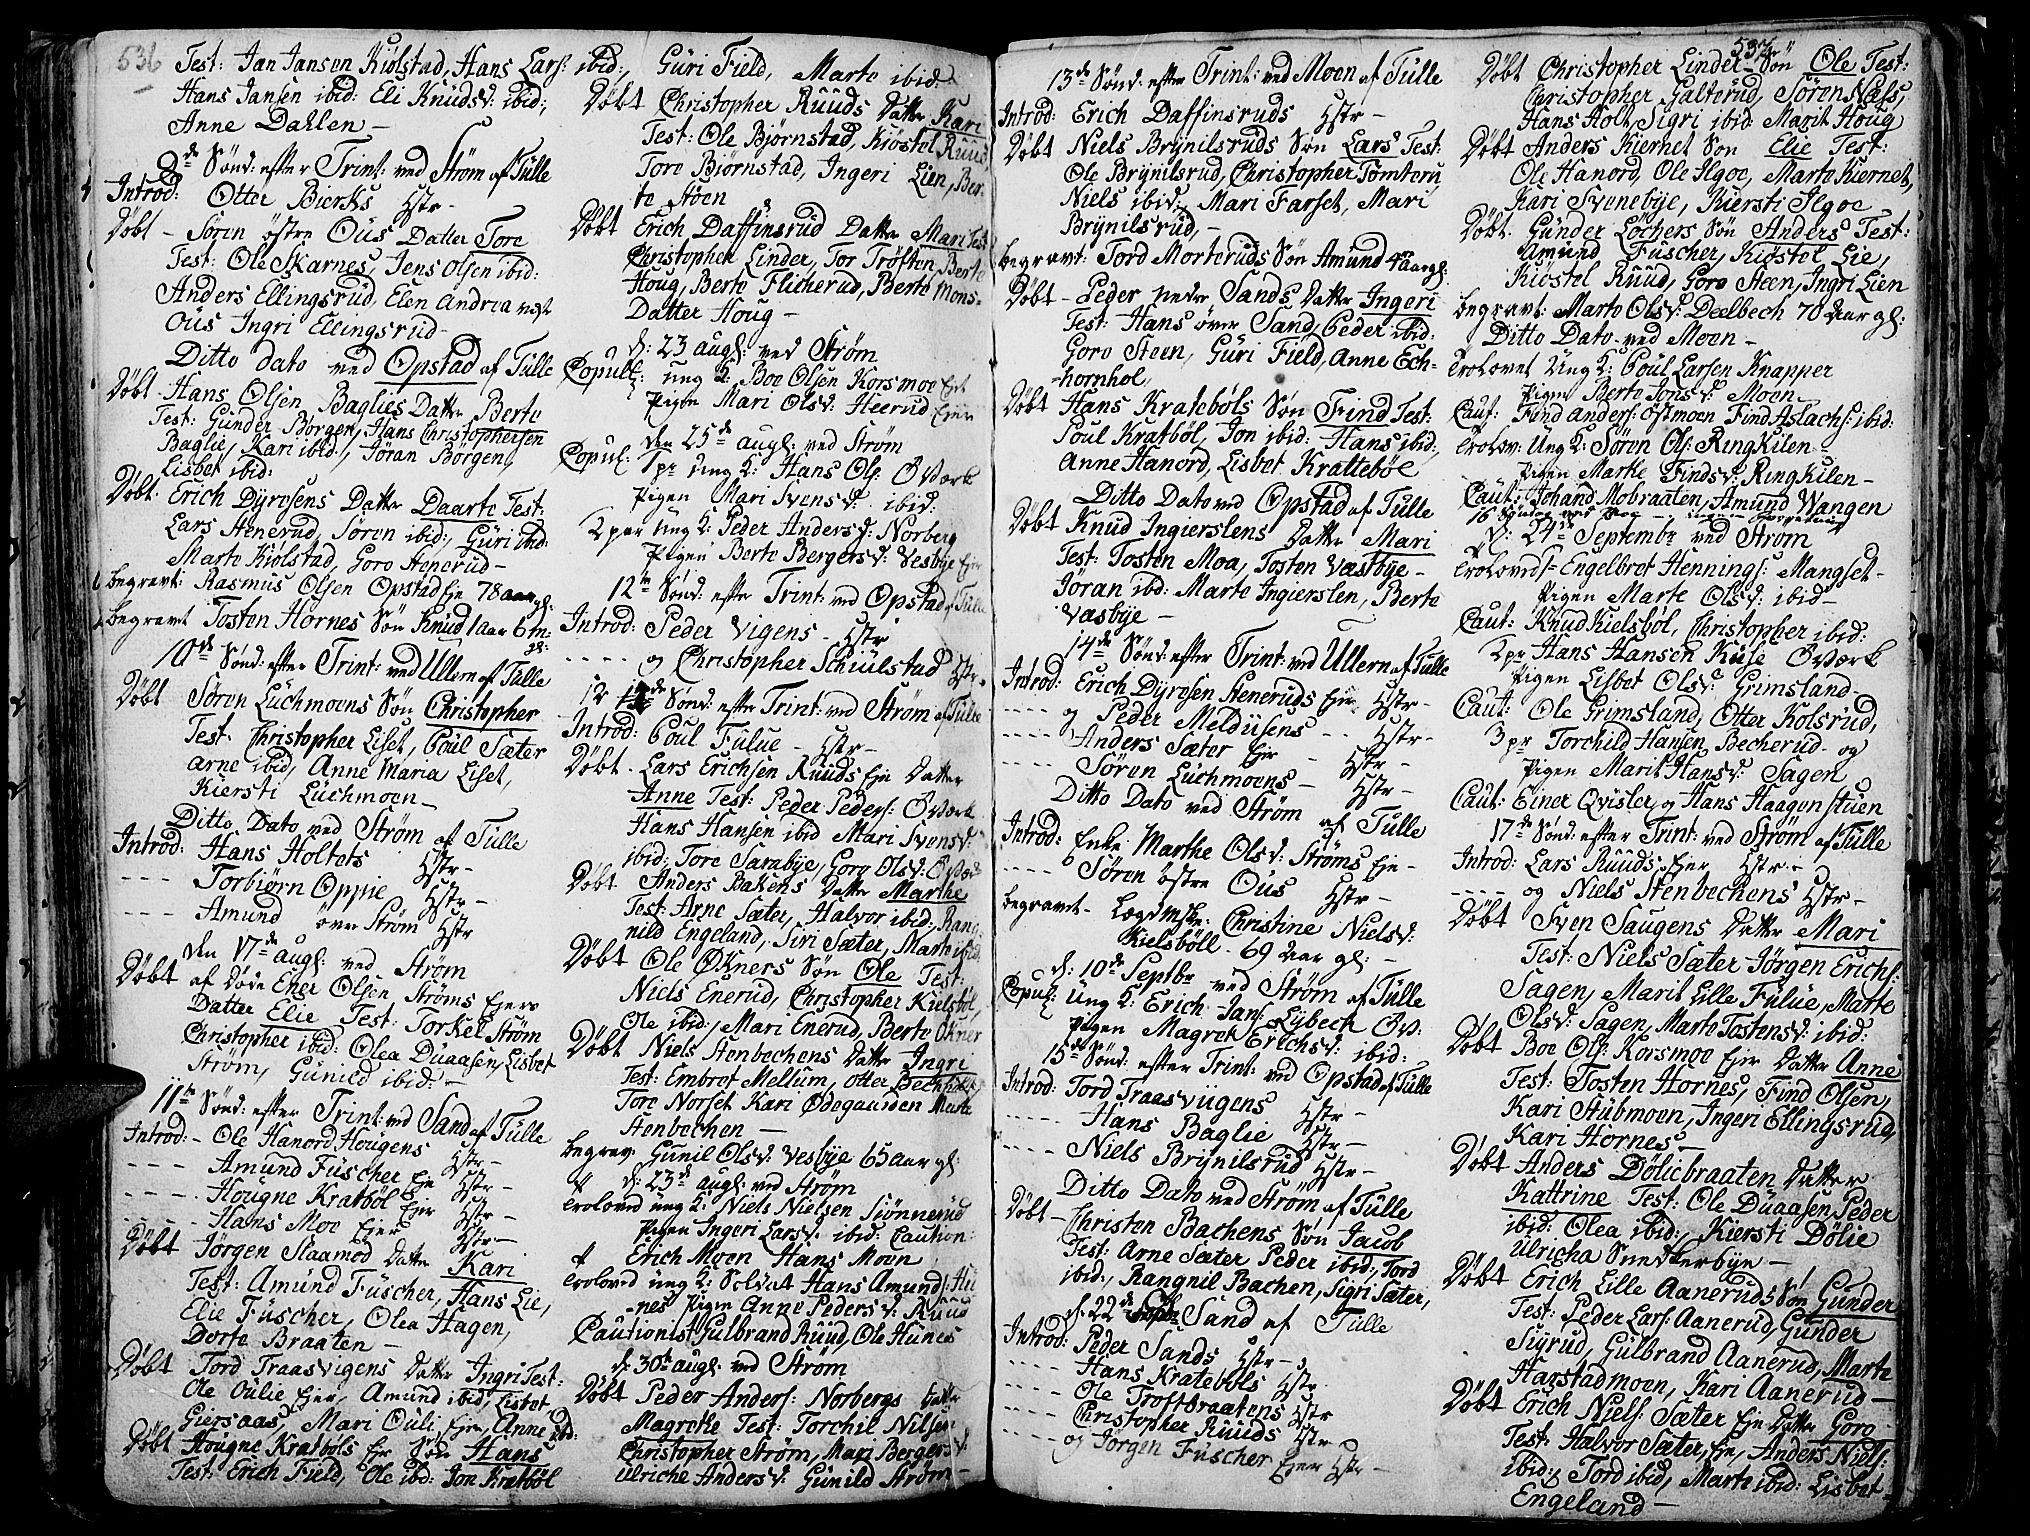 536
Test: Jan Jansen Kiølstad, Hans Lars: ibid:,
Hans Jansen ibid: Eli Knudsd: ibid:,
Anne Dahlen –
9de Sønd: efter Trint: ved Strøm af Tulle
Introd: Otter Bierks Hstr –
Døbt – Søren østre Ous Datter Tore
Test: Ole Skarnes, Jens Olsen ibid:
Anders Ellingsrud, Elen Andrea
Ous Ingri Ellingsrud –
Ditto dato ved Opstad af Tulle
Døbt Hans Olsen Baglies Datter Berte
Test: Gunder Borgen, Hans Christophersen
Baglie, Kari ibid:, Jøran Borgen,
Lisbet ibid:
Døbt. Erich Dyresens Datter Daarte Test:
Lars Henerud, Søren ibid:, Guri ibid:
Marte Kiølstad, Goro Henerud –
begravt: Rasmus Olsen Opstad Eje 78 aar gl:
begravt Tosten Hornes Søn Knud 1 aar 6 m:
gl:
10de Sønd: efter Trint: ved Ullern af Tulle
Døbt Søren Luchmoens Søn Christopher
Test: Christopher Liset, Poul Sæter
arne ibid, Anne Maria Liset,
Kiersti Luchmoen –
Ditto Dato ved Strøm af Tulle
Introd: Hans Holtets Hstr –
– – – Torbiørn Oppie Hstr –
– – – Amund øvre Strøm Hstr
den 17de augl: ved Strøm
Døbt af Døde Ener Olsen Strøms Ejers
Datter Elie Test: Torkel Strøm
Christopher ibid: Olea Duaasen, Lisbet
Strøm, Gunild ibid: –
11te Sønd: efter Trint: ved Sand af Tulle
Introd: – Ole Hanord Hougens Hstr –
– – – Amund Fuscher Eje Hstr –
– – – Hougne Kratbøl Ejer Hstr –
– – – Hans Moe Ejer Hstr –
Døbt Jørgen Slaamod Datter Kari
Test: Amund Fuscher, Hans Lie,
Elie Fuscher, Olea Hagen,
Dorte Braaten –
Døbt Tord Traasvigens Datter Ingri Test:
Ole Oulie Ejer, Amund ibid, Lisbet
Giersaas, Mari Ouli Eje, Anne ibd:
Døbt Hougne Kratbøls Ejer Søn Hans
Test: Erich Field, Ole ibd: Jon Kratbøl
Guri Field, Marte ibid:
Døbt Christopher Ruuds Datter Kari
Test: Ole Biørnstad, Kiøstel Ruud
Tore Biørnstad, Ingeri Lien, Ber-
te Støen
Døbt Erich Daffinsrud Datter Mari Test
Christopher Linder, Tor Trøften, Berte
Houg, Berte Flicherud, Berte Mons-
Datter Houg –
d: 23 augl: ved Strøm
Copult: ung K: Boe Olsen Korsmoe Eje
Pigen Mari Olsd: Heerud Ejer
den 25de augl: ved Strøm
Copul: 1pr ung K: Hans Ols: Ø Værk
Pigen Mari Svensd: ibid:
2 par ung K: Peder Andersd: Norberg
Pigen Berte Bergersd: Vesbye Ejer
12te Sønd: efter Trint: ved Opstad af Tulle
Introd: Peder Vigens – Hstr
– – – – og Christopher Schiulstad Hstr –
12 Sønd: efter Trint: ved Strøm af Tulle
Introd: Poul Fulue – Hstr –
Døbt – Lars Erichsen Ruuds Eje Datter
Anne Test: Peder Peders: Ø Værk
Hans Hansen ibid Mari Svensd:
ibid:, Tore Sarabye, Goro Olsd: Ø Værk
Døbt Anders Bakens Datter Marthe
Test: Arne Sæter, Halvor ibid:, Rang-
nild Engeland, Siri Sæter, Marte ibid
Døbt Ole Økners Søn Ole Test:
Niels Enerud, Christopher Kielsbøl,
Ole ibid:, Mari Enerud, Berte Økner
Døbt Niels Stenbechens Datter Ingri
Test: Embret Mellum, Otter Bechholt
Tore Norset Kari Ødegaarden Marte
Stenbechen –
begrav Gunil Olsd: Vesbye 65 aar gl:
d: 23de augl: ved Strøm
Troloved ung K: Niels Nielsen Siønnerud
Pigen Ingeri Larsd: ibid: Caution:
Erich Moen Hans Moen
Troloved ung K: Soldat Hans Amunds: Hu-
nes Pigen Anne Pedersd: Ruud
Cautionist Gulbrand Ruud, Ole Hunes
d: 30te augl: ved Strøm
Døbt Peder Anders: Norbergs Datter
Magrethe Test: Torchil Nilsen
Christopher Strøm, Mari Bergersd:
Ulriche Andersd: Gunild Strøm –
537
13de Sønd: efter Trint: ved Moen af Tulle
Introd: Erich Daffinsruds Hstr –
Døbt Niels Brynilsruds Søn Lars Test:
Ole Brynilsrud, Christopher Tomteru
Niels ibid:, Mari Farset, Mari
Brynilsrud, –
begravt: Tord Morteruds Søn Amund 4 aar gl:
Døbt – Peder neder Sands Datter Ingeri
Test: Hans øver Sand, Peder ibid:
Goro Steen, Guri Field, Anne Ech-
hornhol,
Døbt Hans Kratebøls Søn Trind Test:
Poul Kratbøl, Jon ibid: Hans ibid:,
Anne Hanord, Lisbet Krattebøl,
Ditto Dato ved Opstad af Tulle
Døbt Knud Ingierslens Datter Mari
Test: Tosten Moa, Tosten Vastbye –
Joran ibd: Marte Ingierslen, Berte
Vasbye –
14de Sønd: efter Trint: ved Ullern af Tulle
Introd: Erich Dyresen Steneruds Eje Hstr –
– – – – og Peder Meldiisens – Hstr –
– – – – Anders Sæter Eje – Hstr –
– – – – Søren Luchmoens – Hstr –
Ditto Dato ved Strøm af Tulle
Introd: Enke Marthe Olsd: Strøms Eje –
– – – – Søren østre Ous Hstr –
begravt – Lægdmske: Christine Nielsd:
Kielsbøll – 69 aar gl: –
d: 10de Septbr ved Strøm af Tulle
Copul: Ung K: Erich Jans: Lybeck Øv:
Pigen Magret Erichsd: ibid:
15de Sønd: efter Trint: ved Opstad af Tulle
Introd: Tord Traasviigens Hstr –
– – – – Hans Baglie Hstr –
– – – – Niels Brynilsrud Hstr –
Ditto Dato ved Strøm af Tulle
Døbt – Christen Bachens Søn Jacob
Test: Arne Sæter Peder ibid:, Tord
ibid:, Rangnil Bachen, Sigri Sæter,
d: 22de Sand af Tulle
Introd: Peder Sands Hstr –
– – – – Hans Kratebøls Hstr
– – – – Ole Troftbraatens Hstr
– – – – Christopher Ruuds Hstr
– – – – og Jørgen Fuscher Ejer Hstr –
Døbt Christopher Linder Søn Ole Test:
Christopher Galterud, Søren Næs,
Hans Holt, Sigri ibid: Marit Houg
Døbt Anders Kiernet Søn Elie Test:
Ole Hanord, Ole Ilgoe, Marte Kiernet,
Kari Svenebye, Kiersti Ilgoe
Døbt. Gunder Løchers Søn Anders Test:
Amund Fuscher, Kiøstel Lie,
Kiøstel Ruud, Goro Steen, Ingri Lien
begravt: Marte Olsd: Deelbech 70 Aar gl:
Ditto Dato ved Moen –
Trolovet Ung K: Poul Larsen Knapper
Pigen Berte Jonsd: Moen
Caut: Find Anders: Østmoen Find Aslachs: ibid:
Trolov: Ung K: Søren Ols: Ringkilen
Pigen Marke Findsd: Ringkilen –
Caut: Johand Mobraaten, Amund Wangen
d: 24de Septembr ved Strøm
Troloved 1– Engelbret Hennings: Mangset –
Pigen Marte Olsd: ibid –
Caut: Knud Kielsbøl, Christopher ibid:
2pr Hans Hansen Kuse Ø Værk
Pigen Lisbet Olsd: Grimsland –
Caut: Ole Grimsland, Otter Kolsrud,
3pr Torchild Hansen Becherud – og
Pigen Marit Hansd: Sagen
Caut: Einer Qvisler, og Hans Haagenstuen
17de Sønd: efter Trint: ved Strøm af Tulle
Introd: Lars Ruuds Ejer Hstr –
– – – – og Niels Stenbechens Hstr –
Døbt Sven Saugens Datter Mari
Test: Niels Sæter Jørgen Erichs:
Sagen, Marit Lille Fulue, Marte
Olsd: Sagen, Marte Tostensd: ibid:
Døbt Boe Ols: Korsmoe Ejer Datter Anne
Test: Tosten Hornes, Find Olsen,
Kari Stubmoen, Ingeri Ellingsrud,
Kari Hornes –
Døbt Anders Døliebraaten Datter
Kattrine Test: Ole Duaasen Peder
ibid: Olea ibid:, Kiersti Dølie
Ulricha Snedkerbye –
Døbt Erich Lille Aaneruds Søn Gunder
Test: Peder Lars: Aanerud, Gunder
Sigrud, Gulbrand Aanerud, Marte
Harstadmoen, Kari Aanerud –
Døbt Erich Niels: Sæter Eje Datter Goro
Test: Halvor Sæter, Eje, Anders Niels:
ibid:, Tord ibid, Marte ibid: Lisbet –
Engeland –